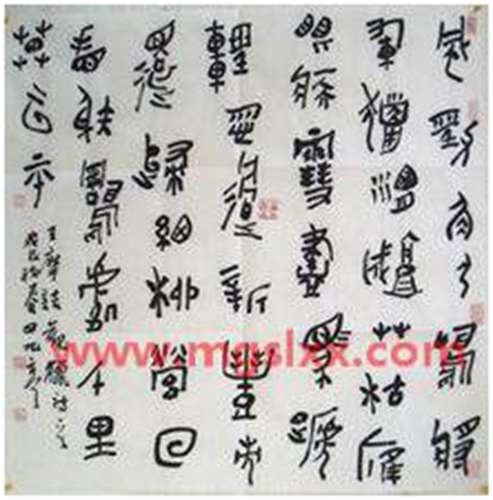 風勁角弓鳴將
軍獵渭城草枯鷹
眼疾雪盡馬蹄
輕忽過新豐市
還歸細柳營回
看射鵰處千里
暮云平
王摩詰觀獵詩
www.mgslxx.com